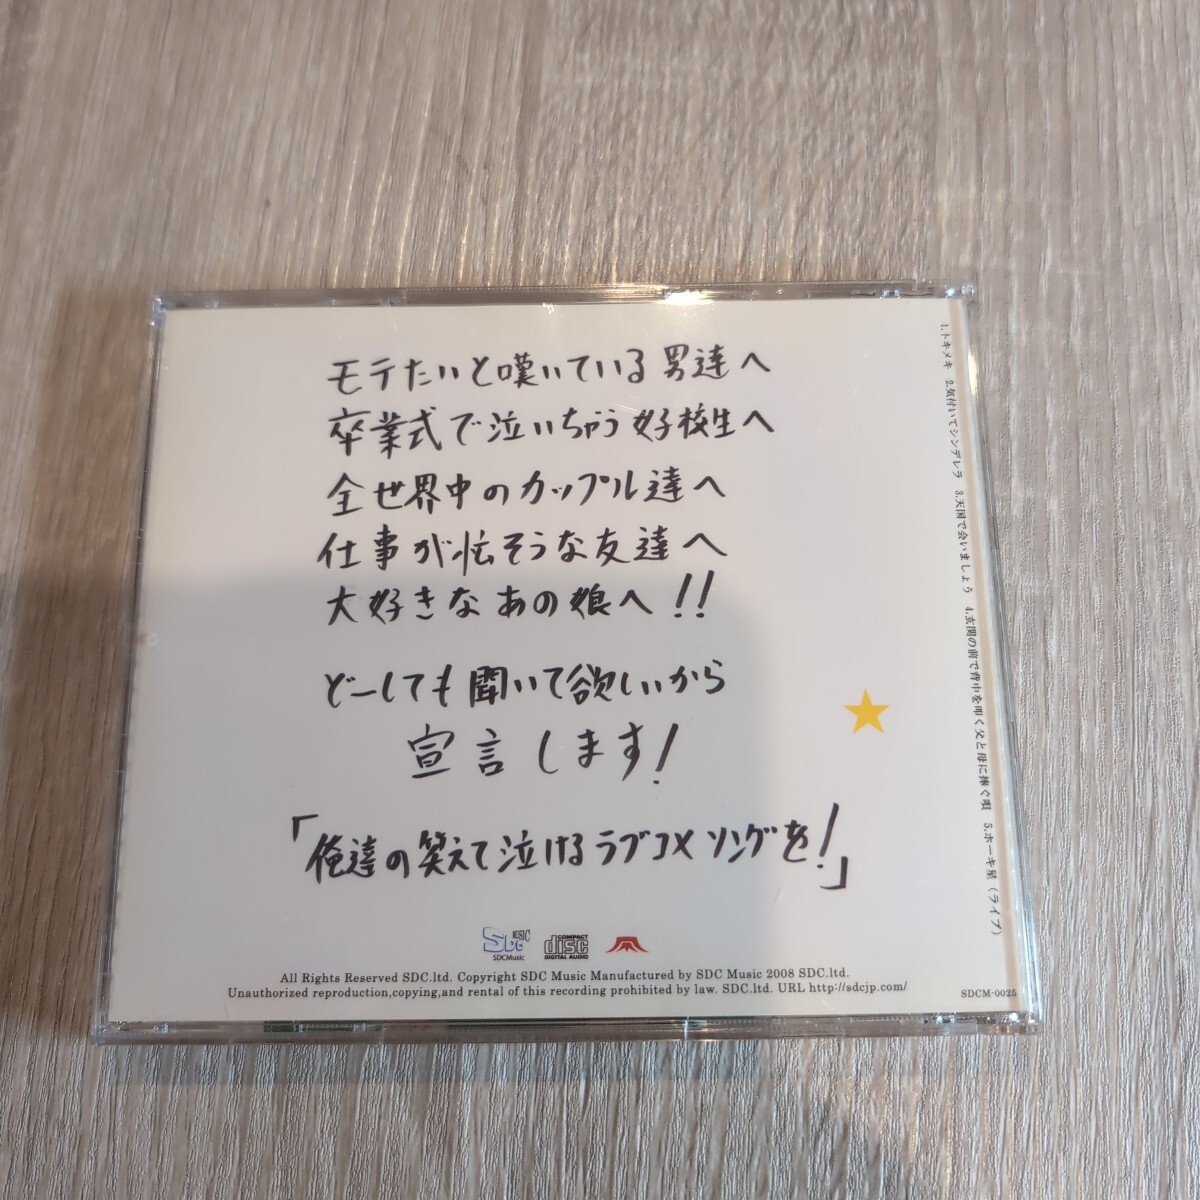 モテたいと嘆いている男達へ
卒業式で泣いちゃう女子校生へ
全世界中のカップル達へ
仕事が忙そうな友達へ
大好きなあの娘へ!!
どーしても聞いて欲しいから
宣言します!
「俺達の笑えて泣けるラブコメソングを!」
1.トキメキ 2.気付いてシンデレラ 3.天国で会いましょう 4.玄関の前で背中を叩く父と母に捧ぐ唄 5.ホーキ星(ライブ)
SDC MUSIC
SDCMusic
COMPACT
disc
DIGITAL AUDIO
All Rights Reserved SDC.ltd. Copyright SDC Music Manufactured by SDC Music 2008 SDC.ltd.
Unauthorized reproduction,copying,and rental of this recording prohibited by law. SDC.ltd. URL http://sdcjp.com/
SDCM-0025